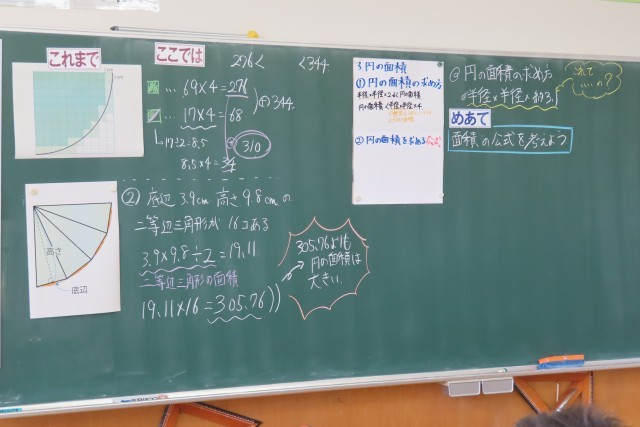 これまで
ここでは
276<
<344.
… 69×4=276
… 17×4=68
344.
17÷2=8.5
8.5×4=34
310
高さ
底辺
② 底辺 3.9cm 高さ 9.8cmの
二等辺三角形が 16コある
3.9×9.8÷2=19.11
二等辺三角形の面積
19.11×16=305.76
305.76よりも
円の面積は
大きい
3 円の面積
① 円の面積の求め方
半径×半径×2<円の面積
円の面積<半径×半径×4
② 円の面積を求める公式
@ 円の面積の求め方
半径×半径×約3.1
これで
……の?
めあて
面積の公式を考えよう